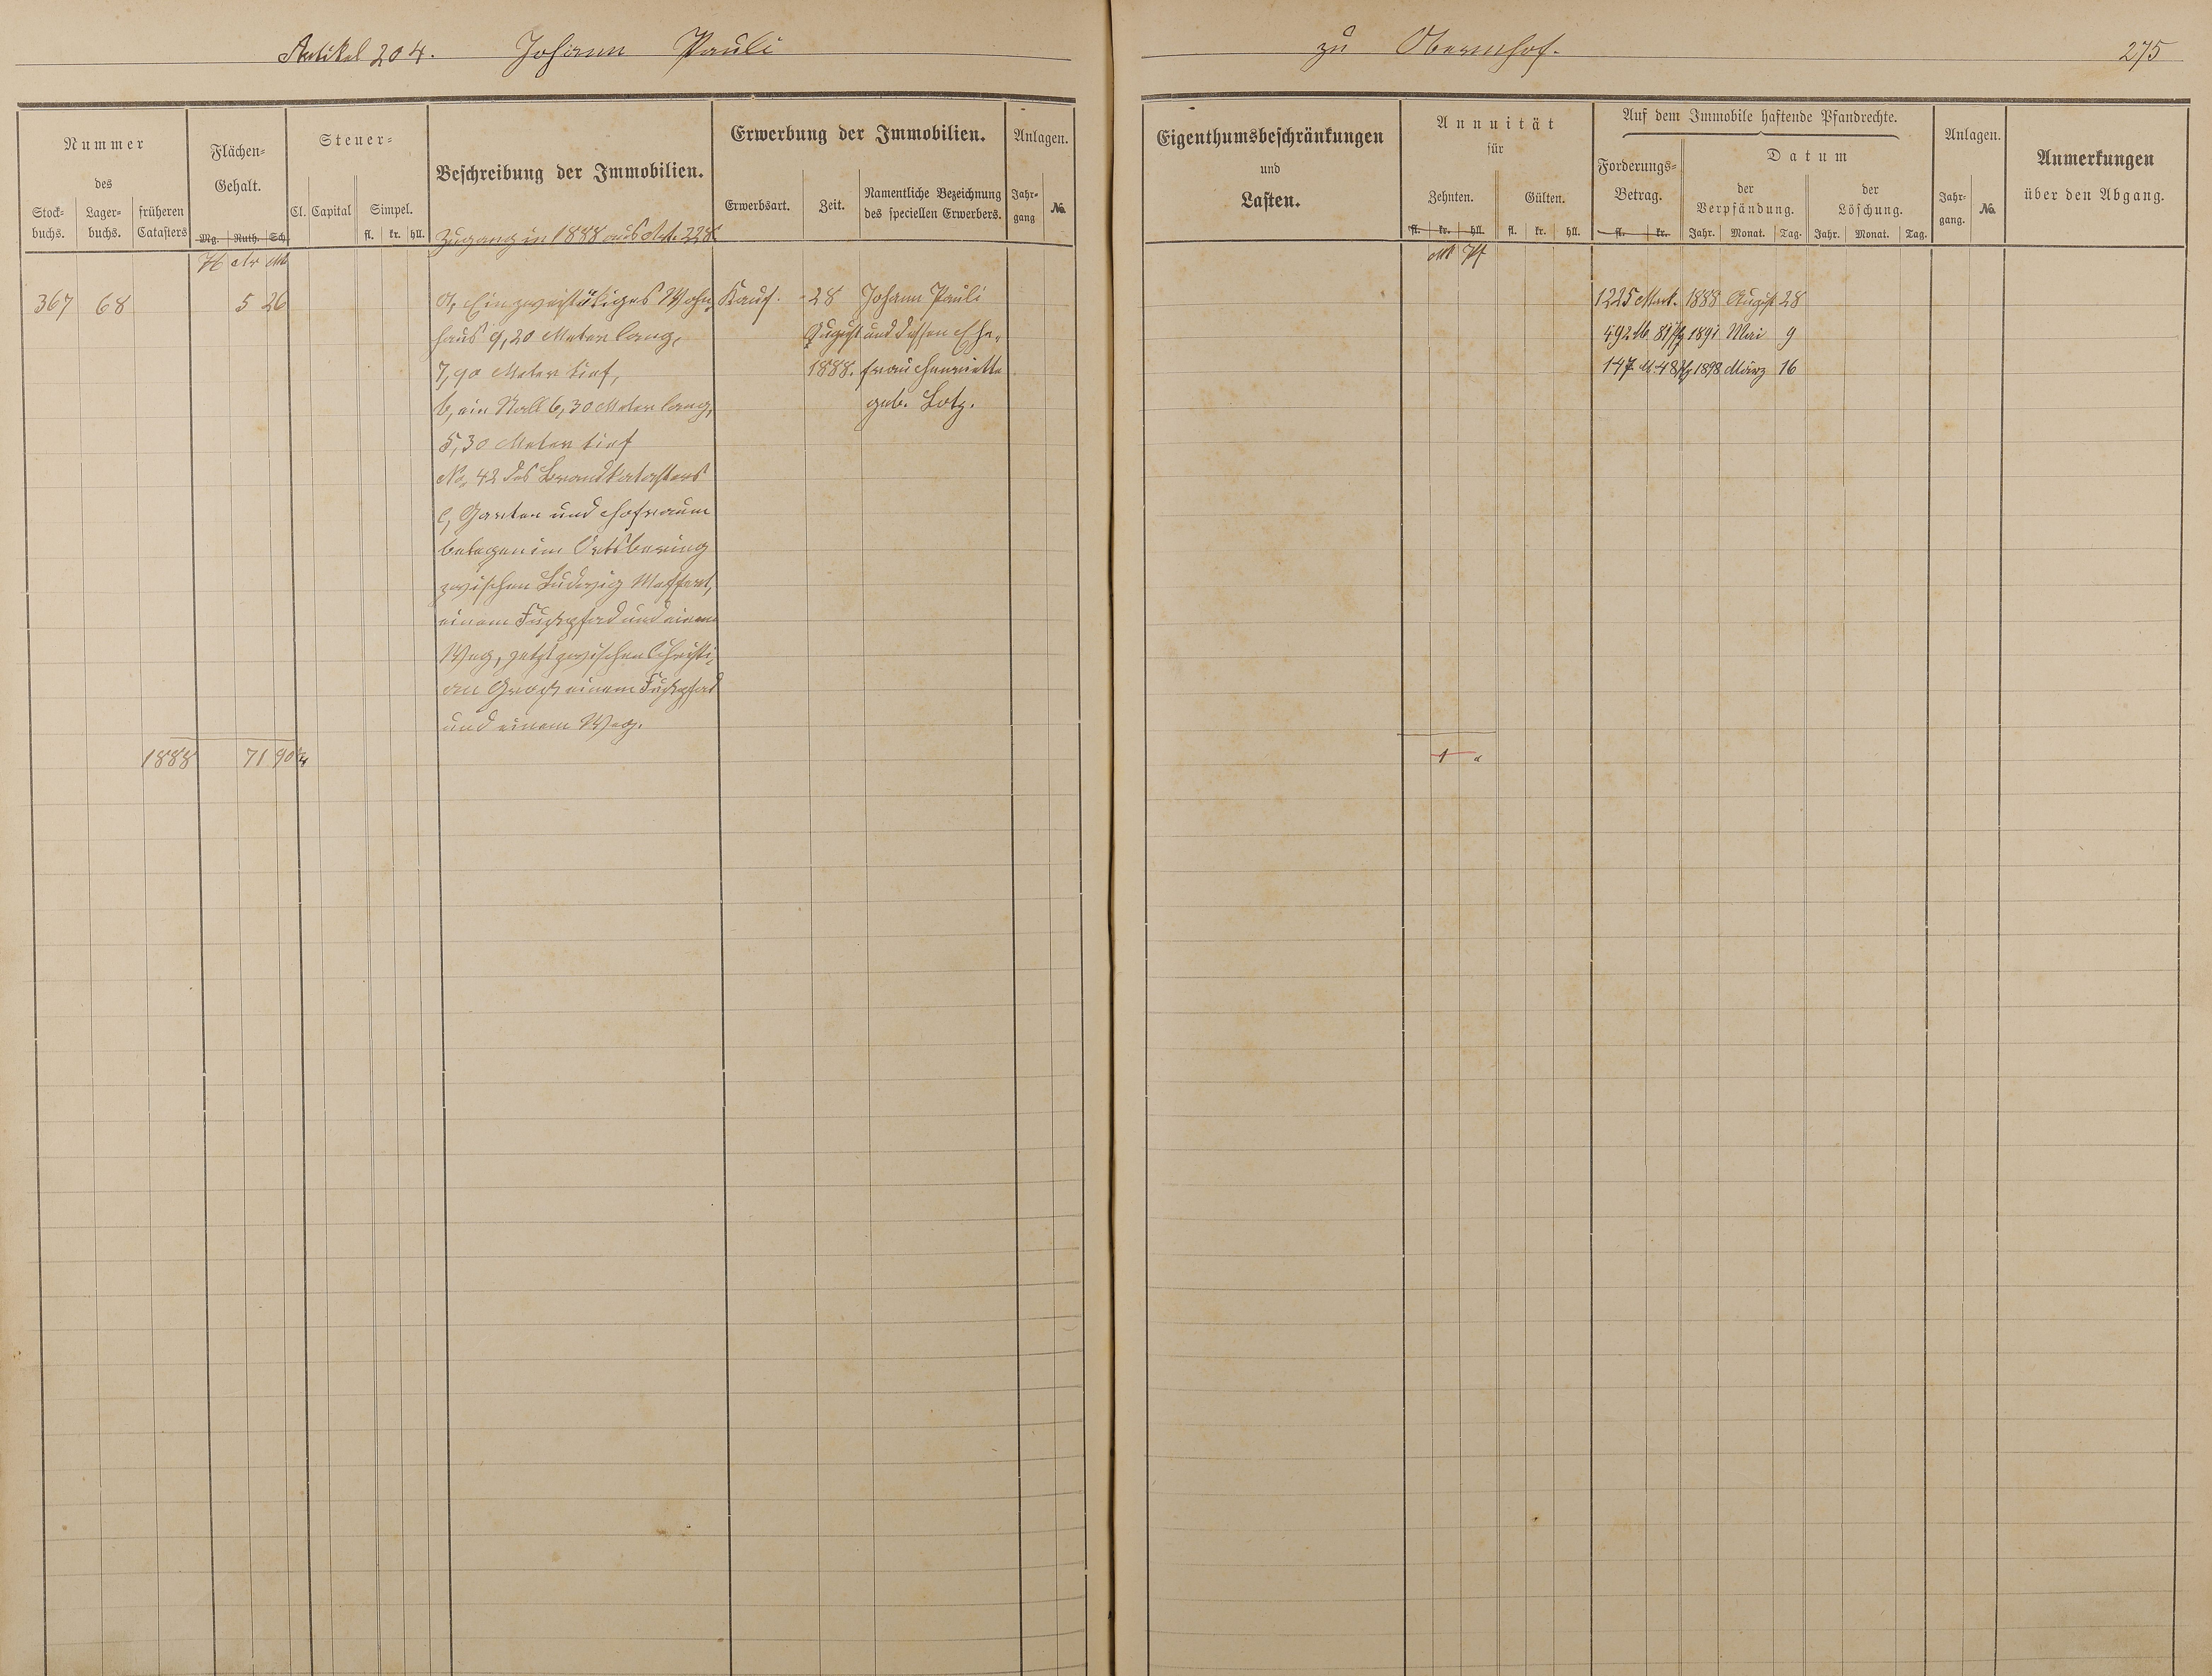 Artikel 204. Johann Pauli
zu Obernhof. 275
Nummer
des
Stock-
buchs.
Lager-
buchs.
früheren
Catasters
Flächen-
Gehalt.
Mg. Ruth. Sch.
H Ar M
Steuer-
Cl. Capital Simpel.
fl. kr. hll.
Beschreibung der Immobilien.
Zugang in 1888 aus Art. 228
Erwerbung der Immobilien.
Erwerbsart. Zeit.
Namentliche Bezeichnung
des speciellen Erwerbers.
Anlagen.
Jahr-
gang
No.
367 68 5 26
a, Ein zweistökiges Wohn-
haus 9,20 Meter lang,
7,90 Meter tief,
b, ein Stall 6,30 Meter lang,
5,30 Meter tief
No. 42 des Brandkatasters
c, Garten und Hofraum
belegen im Ortsbering
zwischen Ludwig
einem Fußpfad und einem
Weg, jetzt zwischen Christi-
an Groß einem Fußpfad
und einem Weg.
Kauf.
28
August
1888.
Johann Pauli
und dessen Ehe-
frau Henriette
geb. Lotz.
1888 71 90 3/4
Eigenthumsbeschränkungen
und
Lasten.
Annuität
für
Zehnten. Gülten.
fl. kr. hll. fl. kr. hll.
M Pf
Auf dem Immobile haftende Pfandrechte.
Forderungs-
Betrag.
fl. kr.
Datum
der
Verpfändung.
der
Löschung.
Jahr. Monat. Tag. Jahr. Monat. Tag.
Anlagen.
Jahr-
gang.
No.
Anmerkungen
über den Abgang.
1225 Mark. 1888 August 28
492 M 81 Pfg 1891 Mai 9
147 M. 48 Pfg 1898 März 16
1 "